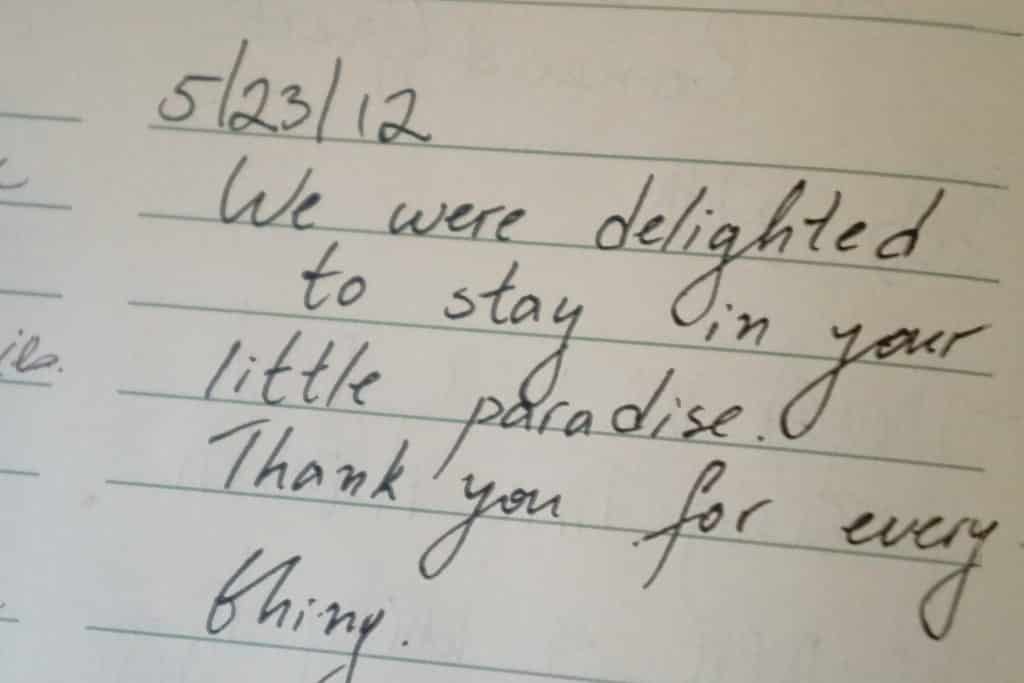 5/23/12
We were delighted
to stay in your
little paradise.
Thank you for every
thing.